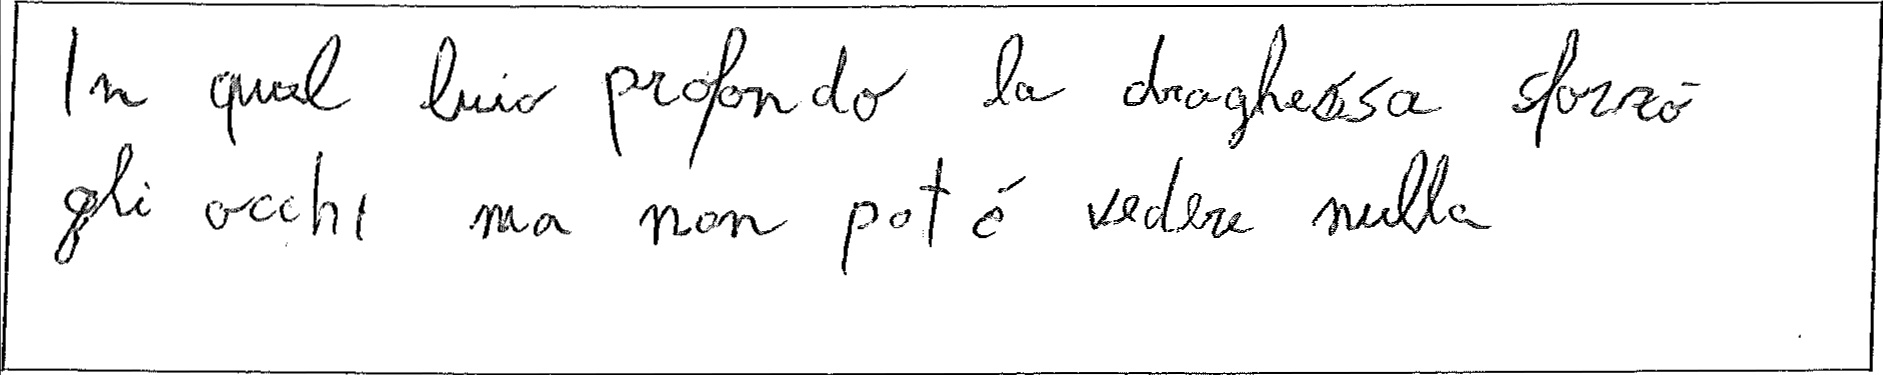 In qual buio profondo la draghessa sforzò
gli occhi ma non poté vedere nulla